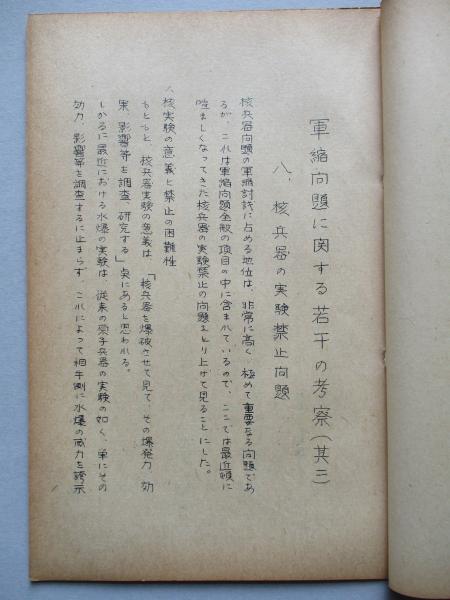 軍縮問題に関する若干の考察（其三）
八、核兵器の実験禁止問題
核兵器問題の軍縮討議に占める地位は、非常に高く、極めて重要なる問題であ
るが、これは軍縮問題全般の項目の中に含まれているので、ここでは最近頓に
喧ましくなってきた核兵器の実験禁止の問題をとり上げて見ることにした。
核実験の意義と禁止の困難性
もともと、核兵器実験の意義は、「核兵器を爆破させて見て、その爆発力、効
果、影響等を調査、研究する」点にあると思われる。
しかるに最近における水爆の実験は、従来の原子兵器の実験の如く、単にその
効力、影響等を調査するに止まらず、これによって相手側に水爆の威力を誇示